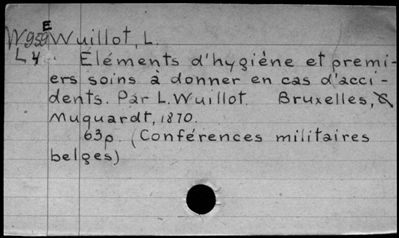 E
W959 Wuillot, L.
L4 Eléments d'hygiène et premi-
ers soins à donner en cas d'acci-
dents. Par L. Wuillot. Bruxelles,
Muquardt, 1870.
63p. (Conférences militaires
belges)